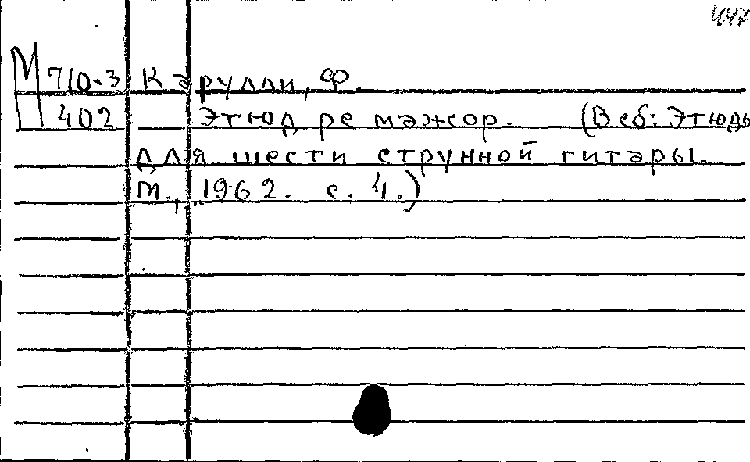 447
М 710-3 Карулли, Ф.
402 Этюд ре мажор. (В сб: Этюды
для шести струнной гитары.
М., 1962. с. 4.)